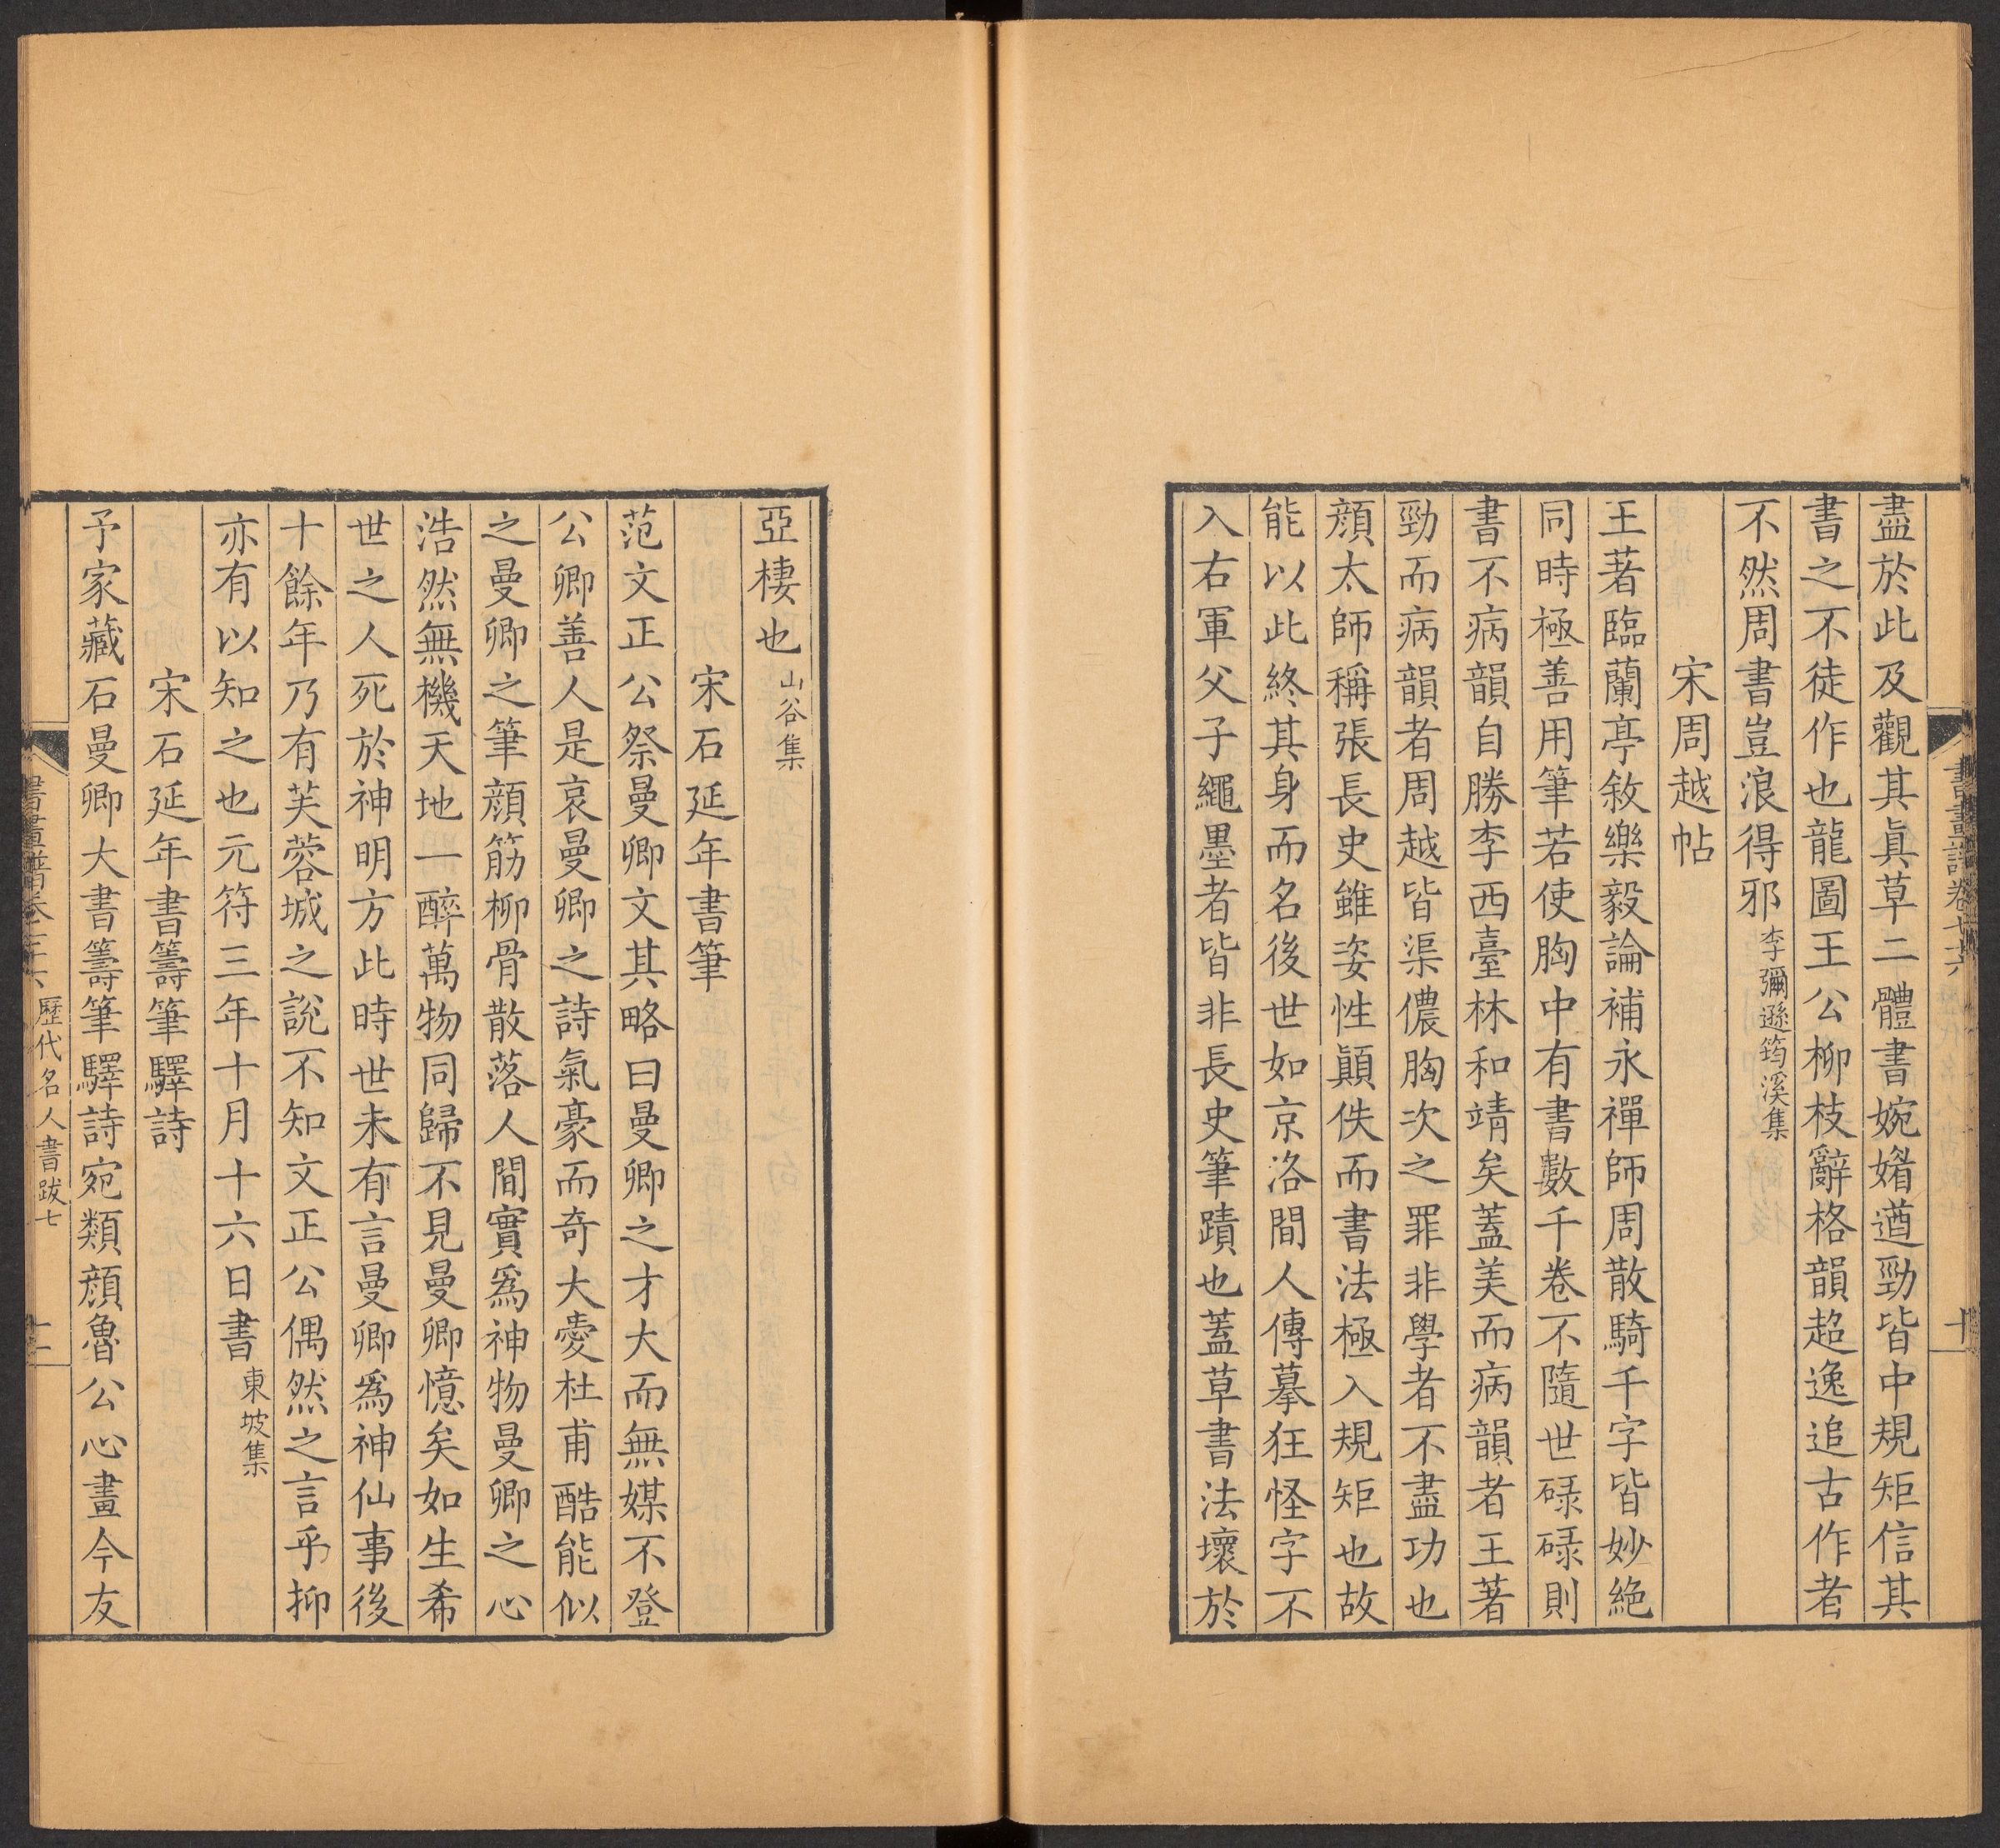 盡於此及觀其眞草二體書婉媠遒勁皆中規矩信其
書之不徒作也龍圖王公柳枝辭格韻超逸追古作者
不然周書豈浪得邪李彌遜筠溪集
宋周越帖
王著臨蘭亭敘樂毅論補永禪師周散騎千字皆妙絕
同時極善用筆若使胸中有書數千卷不隨世碌碌則
書不病韻自勝李西臺林和靖矣蓋美而病韻者王著
勁而病韻者周越皆渠儂胸次之罪非學者不盡功也
顏太師稱張長史雖姿性顛佚而書法極入規矩也故
能以此終其身而名後世如京洛間人傳摹狂怪字不
入右軍父子繩墨者皆非長史筆蹟也蓋草書法壞於
亞棲也山谷集
宋石延年書筆
范文正公祭曼卿文其略曰曼卿之才大而無媒不登
公卿善人是哀曼卿之詩氣豪而奇大愛杜甫酷能似
之曼卿之筆顏筋柳骨散落人間實爲神物曼卿之心
浩然無機天地一醉萬物同歸不見曼卿憶矣如生希
世之人死於神明方此時世未有言曼卿爲神仙事後
十餘年乃有芙蓉城之說不知文正公偶然之言乎抑
亦有以知之也元符三年十月十六日書東坡集
宋石延年書籌筆驛詩
予家藏石曼卿大書籌筆驛詩宛類顏魯公心畫今友
歷代名人書跋七